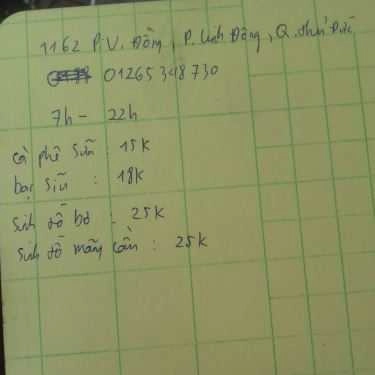 1162 P.V. Đồng, P. Linh Đông, Q. Thủ Đức
01265348730
7h - 22h
cà phê sữa : 15k
bạc sỉu : 18k
sinh tố bơ : 25k
sinh tố mãng cầu : 25k